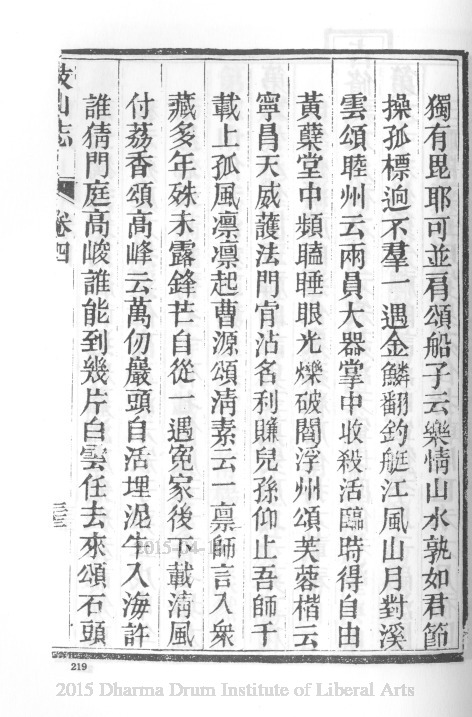 獨有毘耶可並肩頌船子云樂情山水孰如君節
操孤標逈不羣一遇金鱗翻釣艇江風山月對溪
雲頌睦州云兩員大器掌中收殺活臨時得自由
黃蘗堂中頻瞌睡眼光爍破閻浮州頌芙蓉楷云
寧昌天威護法門肯沾名利賺兒孫仰止吾師千
載上孤風凛凛起曹源頌清素云一禀師言入衆
藏多年殊未露鋒芒自從一遇寃家後下載清風
付荔香頌高峰云萬仞巖頭自活埋泥牛入海許
誰猜門庭高峻誰能到幾片白雲任去來頌石頭
鼓山志 卷四 三
219
2015 Dharma Drum Institute of Liberal Arts